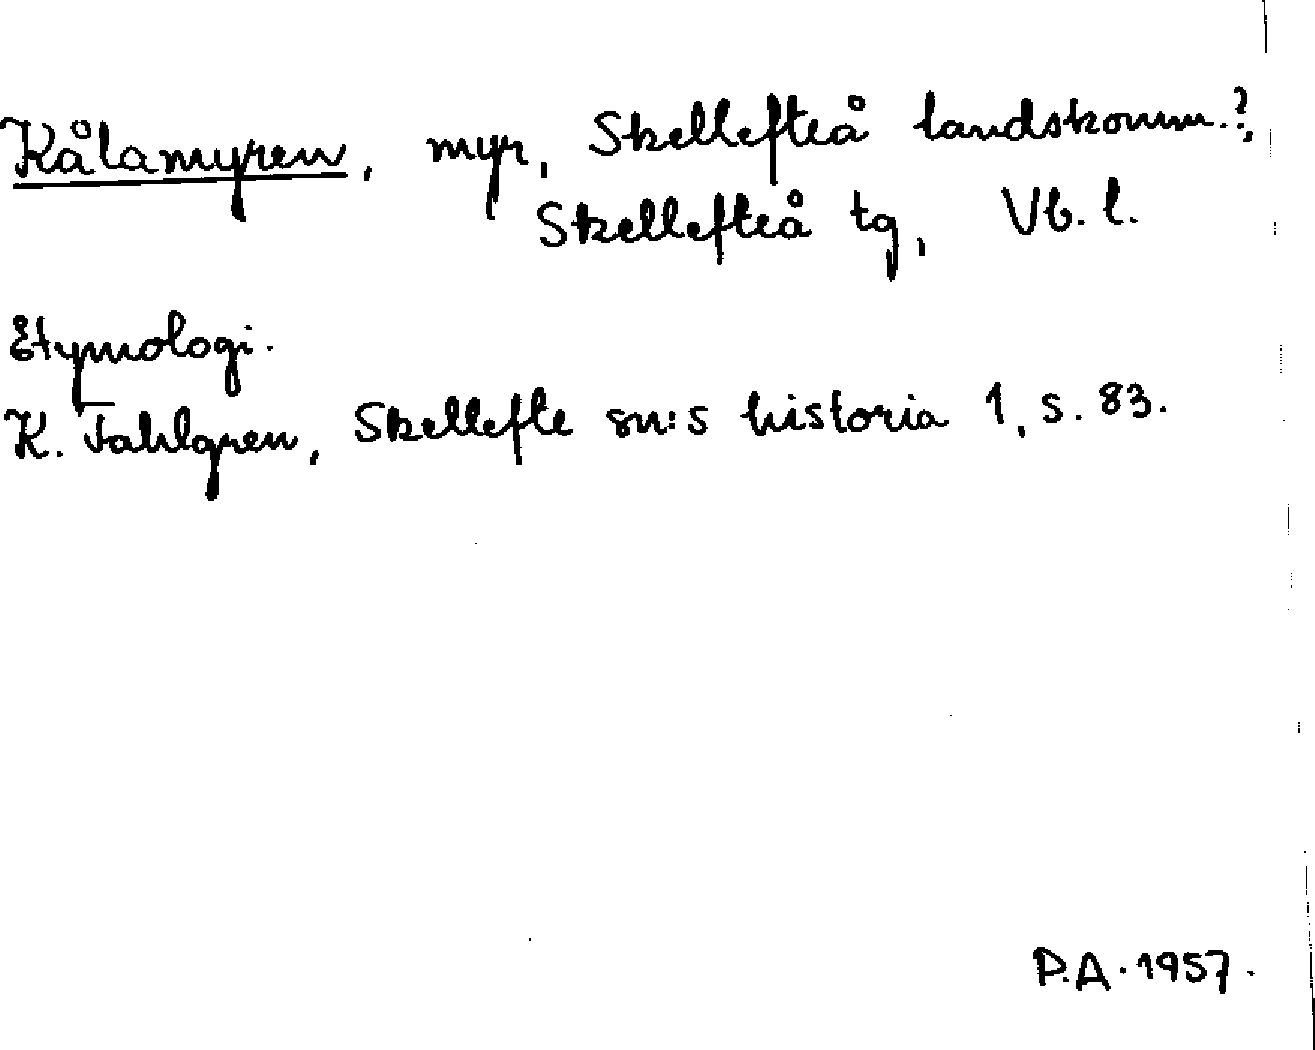 Kålamyren, myr, Skellefteå landskomm.?,
Skellefteå tg, Vb. l.
Etymologi.
K. Fahlgren, Skellefte sn:s historia 1, s. 83.
P.A. 1957.